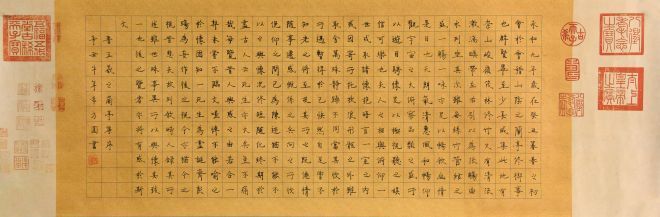 永和九年歲在癸丑暮春之初
會於會稽山陰之蘭亭修禊事
也群賢畢至少長咸集此地有
崇山峻嶺茂林修竹又有清流
激湍映帶左右引以為流觴曲
水列坐其次雖無絲竹管絃之
盛一觴一詠亦足以暢敘幽情
是日也天朗氣清惠風和暢仰
觀宇宙之大俯察品類之盛所
以遊目騁懷足以極視聽之娛
信可樂也夫人之相與俯仰一
世或取諸懷抱晤言一室之內
或因寄所託放浪形骸之外雖
取舍萬殊靜躁不同當其欣於
所遇暫得於己快然自足曾不
知老之將至及其所之既倦情
隨事遷感慨係之矣向之所欣
俛仰之間已為陳迹猶不能不
以之興懷況修短隨化終期於
盡古人云死生亦大矣豈不痛
哉每覽昔人興感之由若合一
契未嘗不臨文嗟悼不能喻之
於懷固知一死生為虛誕齊彭
殤為妄作後之視今亦猶今之
視昔悲夫故列敘時人錄其所
述雖世殊事異所以興懷其致
一也後之覽者亦將有感於斯
文
晉王羲之蘭亭集序